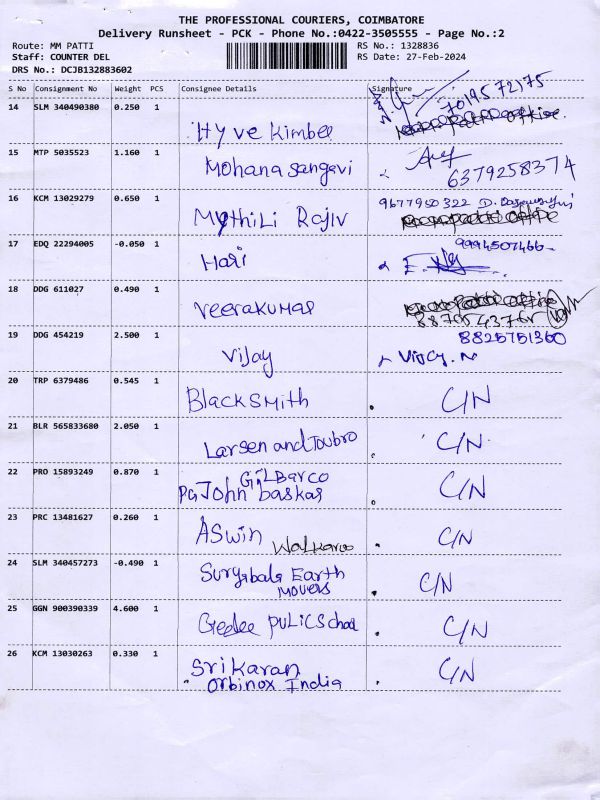 THE PROFESSIONAL COURIERS, COIMBATORE
Delivery Runsheet - PCK - Phone No.:0422-3505555 - Page No.:2
Route: MM PATTI RS No.: 1328836
Staff: COUNTER DEL RS Date: 27-Feb-2024
DRS No.: DCJB132883602
S No Consignment No Weight PCS Consignee Details Signature
14 SLM 340490380 0.250 1 Hyve Kimbee 7019572175
15 MTP 5035523 1.160 1 Mohana Sangavi 6379258374
16 KCM 13029279 0.650 1 Mythili Rajiv 9677950322
17 EDQ 22294005 -0.050 1 Hari 9994507466
18 DDG 611027 0.490 1 Veerakumar
19 DDG 454219 2.500 1 Vijay 8825751360
Vijay. N
20 TRP 6379486 0.545 1 Blacksmith C/N
21 BLR 565833680 2.050 1 Larsen and Toubro C/N
22 PRO 15893249 0.870 1 GilBarco C/N
PG John baskar
23 PRC 13481627 0.260 1 ASwin C/N
24 SLM 340457273 -0.490 1 Suryabala Earth C/N
movers
25 GGN 900390339 4.600 1 Geedee PULiC School C/N
26 KCM 13030263 0.330 1 Sri Karan C/N
Orbinox India